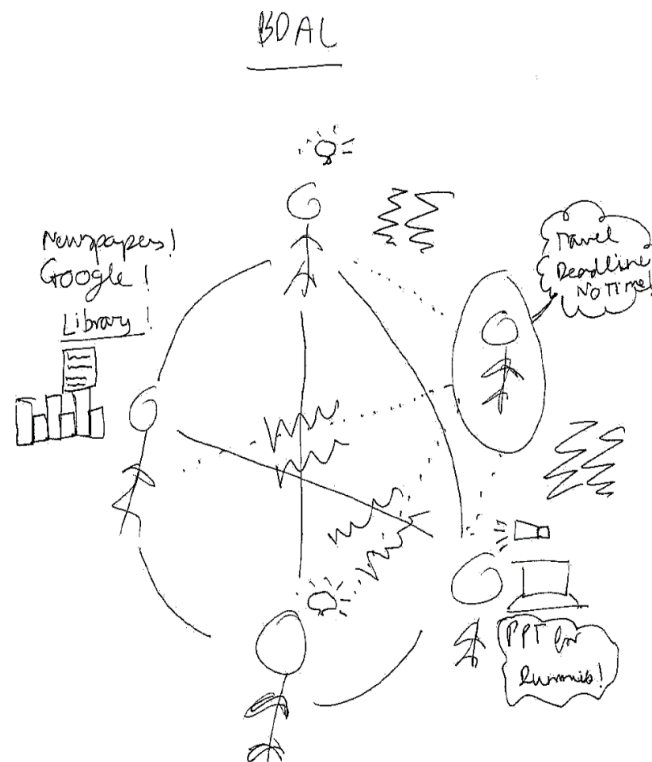 BDAL
Newspapers!
Google!
Library!
Travel
Deadline
No Time!
PPT for
Dummies!